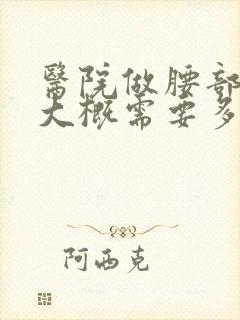 醫院做腰部
大概需要多
阿西克